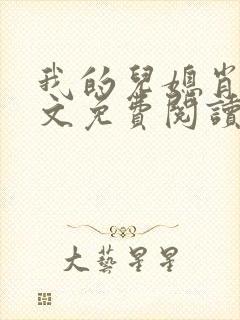 我的兒媳肖
文免費閱讀
大藝星星